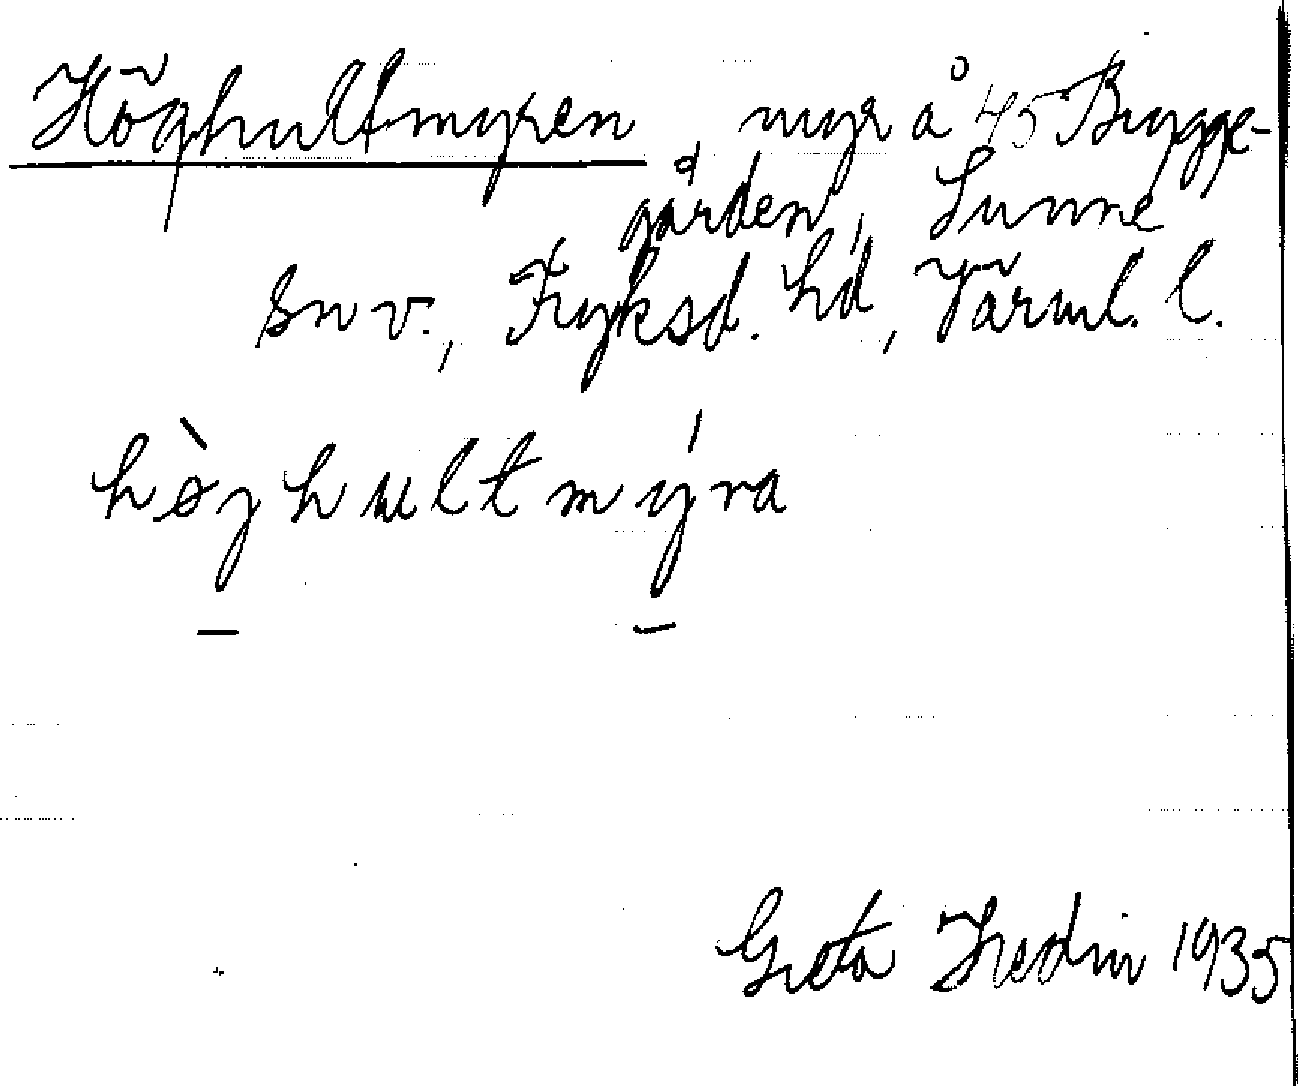 Höghultmyren myr å 45 Brygge-
gården, Sunne
sn v., Fryksd. hd, Värml. l.
hø̀jhultmýra
Greta Hedin 1935